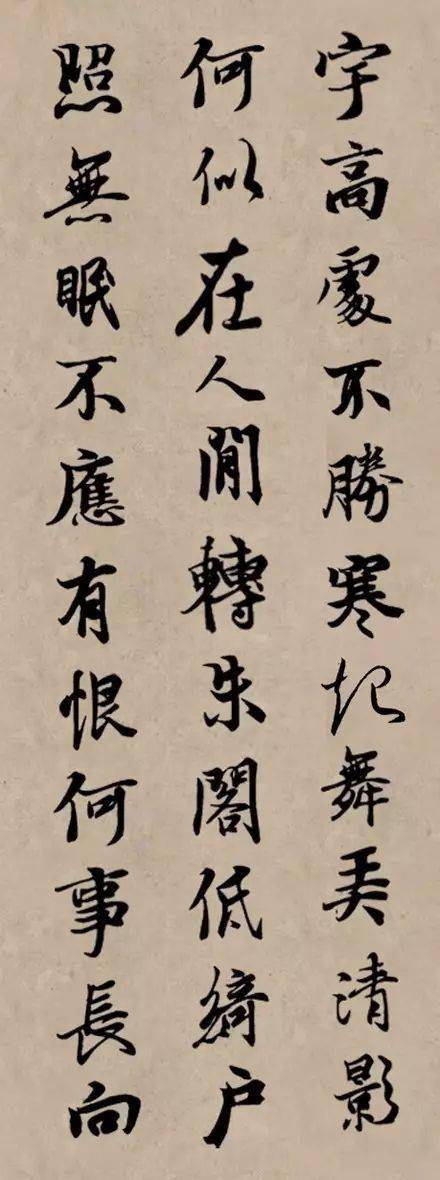 宇高處不勝寒起舞弄清影
何似在人間轉朱閣低綺戶
照無眠不應有恨何事長向